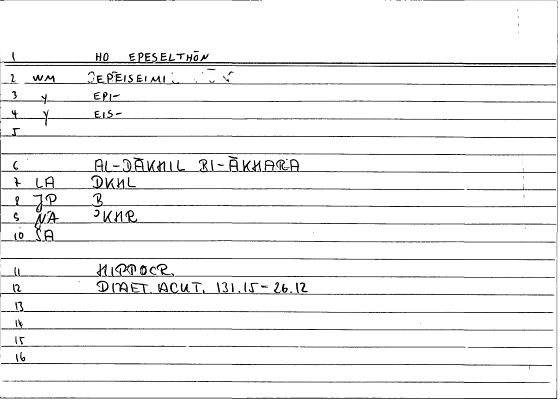 1 HO EPESELTHŌN
2 WM EPEISEIMI
3 Y EPI-
4 Y EIS-
5
6 AL-DĀKHIL BI-ĀKHARA
7 LA DKHL
8 JP B
9 NA ʾKHR
10 SA
11 HIPPOCR.
12 DIAET. ACUT. 131.15-26.12
13
14
15
16